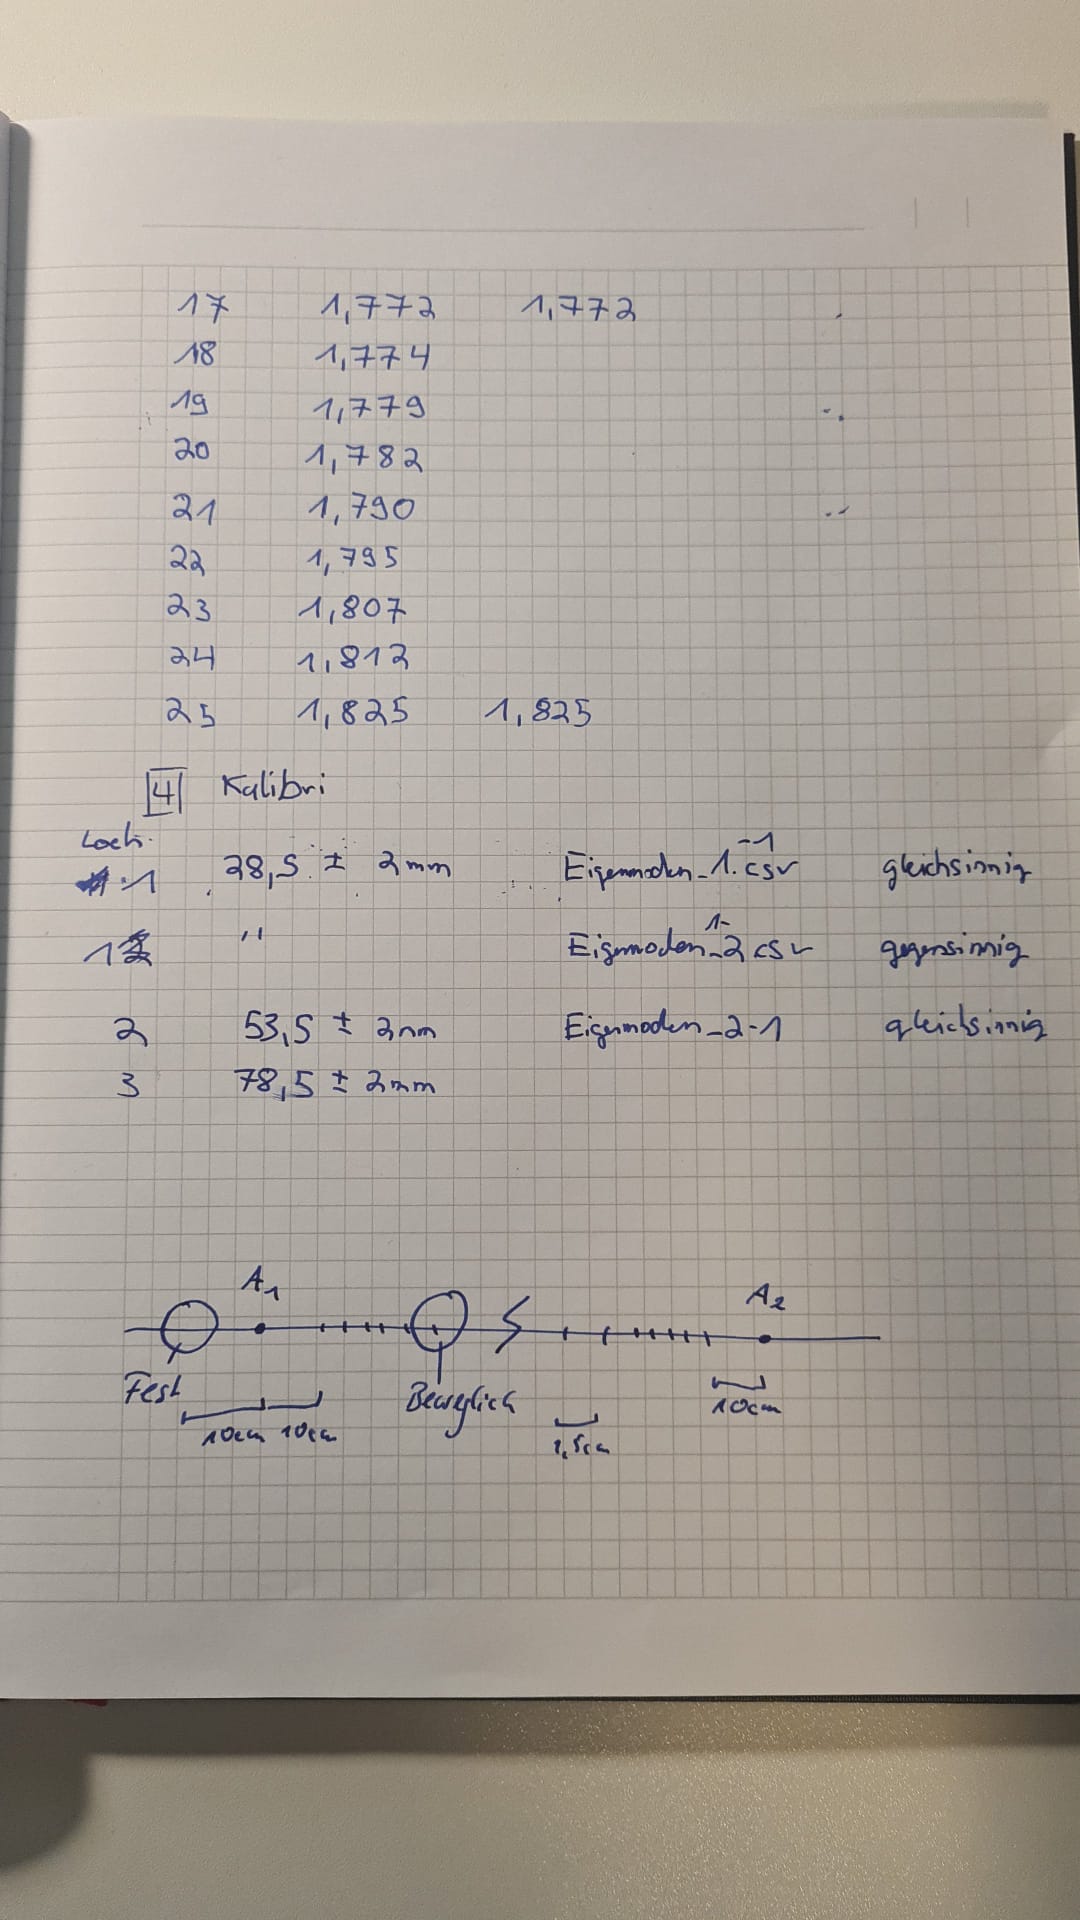 17 1,772 1,772
18 1,774
19 1,779
20 1,782
21 1,790
22 1,795
23 1,807
24 1,812
25 1,825 1,825
4 Kalibri
Loch
1 28,5 ± 2mm Eigenmoden_1-1.csv gleichsinnig
1 '' Eigenmoden_1-2 csv gegensinnig
2 53,5 ± 2mm Eigenmoden_2-1 gleichsinnig
3 78,5 ± 2mm
A1 A2
Fest Beweglich
10cm 10cm 1,5cm 10cm